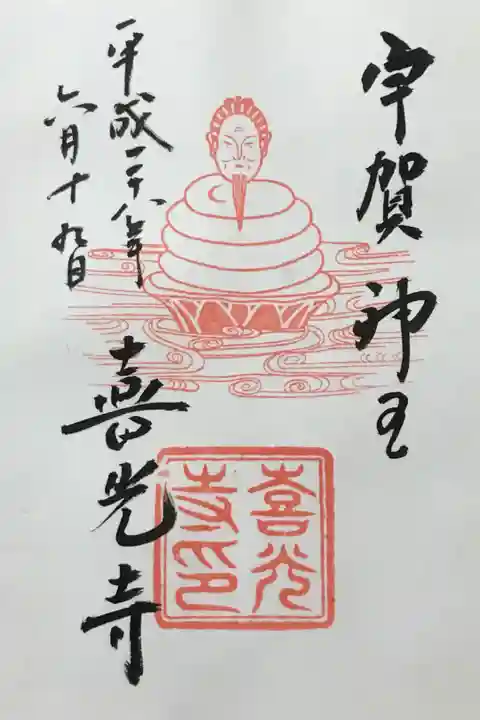 宇賀神王
喜光寺
平成二十八年
六月十九日
喜光
寺印